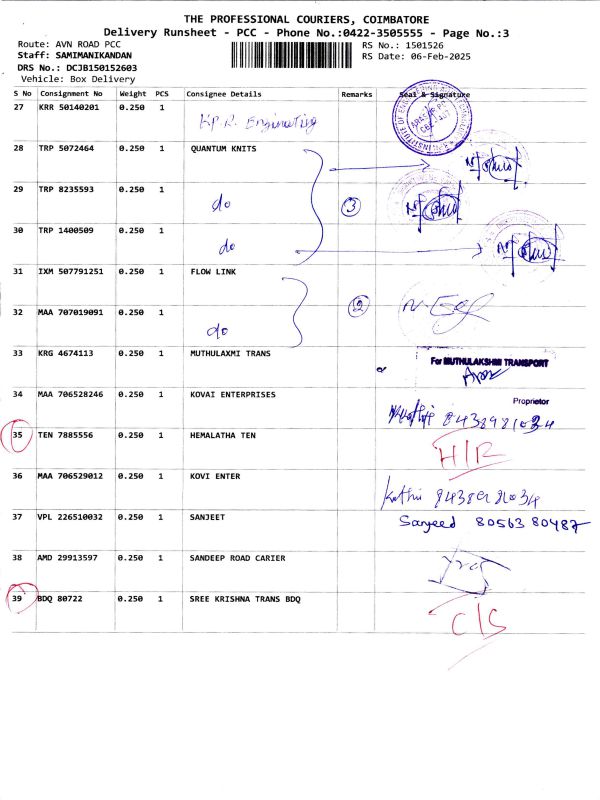 THE PROFESSIONAL COURIERS, COIMBATORE
Delivery Runsheet - PCC - Phone No.:0422-3505555 - Page No.:3
Route: AVN ROAD PCC
RS No.: 1501526
Staff: SAMIMANIKANDAN
RS Date: 06-Feb-2025
DRS No.: DCJB150152603
Vehicle: Box Delivery
S No Consignment No Weight PCS Consignee Details Remarks Seal & Signature
27 KRR 50140201 0.250 1 K.P.R. Engineering
28 TRP 5072464 0.250 1 QUANTUM KNITS
29 TRP 8235593 0.250 1 do 3
30 TRP 1400509 0.250 1 do
31 IXM 507791251 0.250 1 FLOW LINK
32 MAA 707019091 0.250 1 do 2
33 KRG 4674113 0.250 1 MUTHULAXMI TRANS For MUTHULAKSHMI TRANSPORT
Proprietor
34 MAA 706528246 0.250 1 KOVAI ENTERPRISES 8438981034
35 TEN 7885556 0.250 1 HEMALATHA TEN H/R
36 MAA 706529012 0.250 1 KOVI ENTER Kathi 8438981034
37 VPL 226510032 0.250 1 SANJEET Sanjeed 80563 80487
38 AMD 29913597 0.250 1 SANDEEP ROAD CARIER
39 BDQ 80722 0.250 1 SREE KRISHNA TRANS BDQ C/S